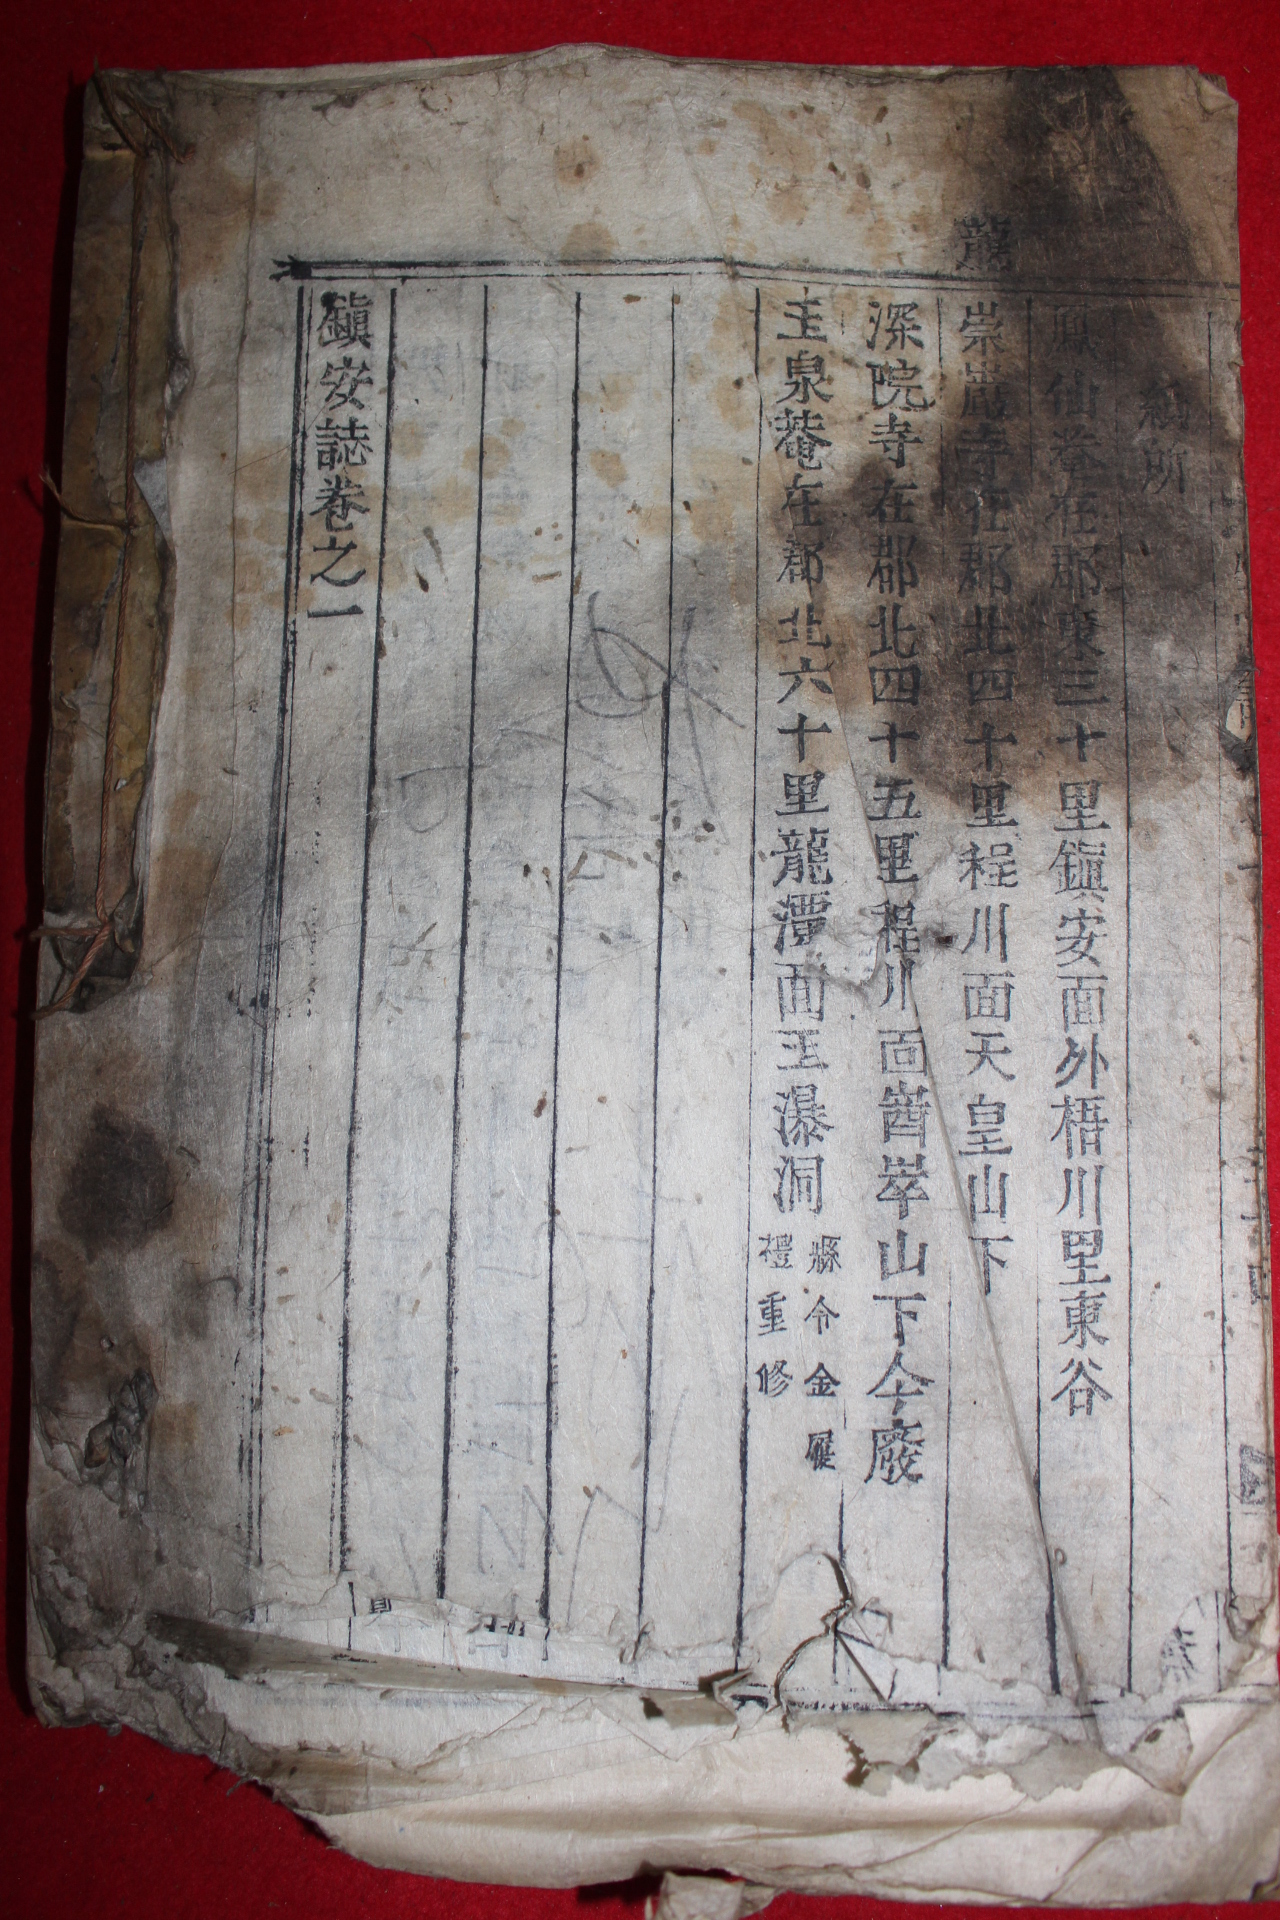 所
仙菴在郡東三十里鎭安面外梧川里東谷
龍
崇嵓寺在郡北四十里程川面天皇山下
深院寺在郡北四十五里程川面崷崒山下今廢
玉泉菴在郡北六十里龍潭面玉瀑洞 縣令金履禮重修
鎭安誌卷之一